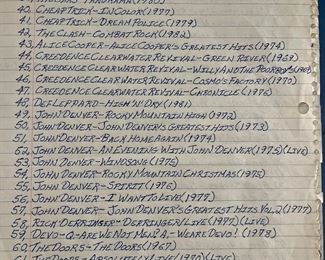 40. CHEAP TRICK-IN COLOR (1977)
41. CHEAP TRICK-DREAM POLICE (1979)
42. THE CLASH-COMBAT ROCK (1982)
43. ALICE COOPER-ALICE COOPER'S GREATEST HITS (1974)
44. CREEDENCE CLEARWATER REVIVAL-GREEN RIVER (1969)
45. CREEDENCE CLEARWATER REVIVAL-WILLY AND THE POORBOYS (1969)
46. CREEDENCE CLEARWATER REVIVAL-COSMO'S FACTORY (1970)
47. CREEDENCE CLEARWATER REVIVAL-CHRONICLE (1976)
48. DEF LEPPARD-HIGH 'N' DRY (1981)
49. JOHN DENVER-ROCKY MOUNTAIN HIGH (1972)
50. JOHN DENVER-JOHN DENVER'S GREATEST HITS (1973)
51. JOHN DENVER-BACK HOME AGAIN (1974)
52. JOHN DENVER-AN EVENING WITH JOHN DENVER (1975) (LIVE)
53. JOHN DENVER-WINDSONG (1975)
54. JOHN DENVER-ROCKY MOUNTAIN CHRISTMAS (1975)
55. JOHN DENVER-SPIRIT (1976)
56. JOHN DENVER-I WANT TO LIVE (1977)
57. JOHN DENVER-JOHN DENVER'S GREATEST HITS VOL.2 (1977)
58. RICK DERRINGER-DERRINGER/LIVE (1977) (LIVE)
59. DEVO-Q-ARE WE NOT MEN? A.-WE ARE DEVO! (1978)
60. THE DOORS-THE DOORS (1967)
61. THE DOORS-ABSOLUTELY LIVE (1970) (LIVE)